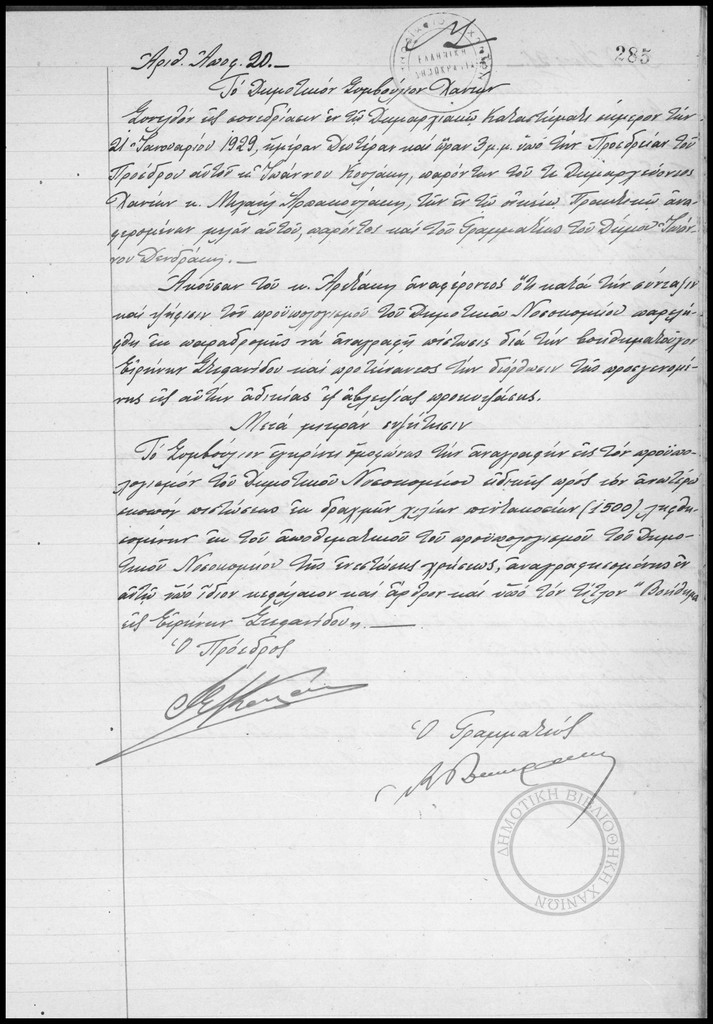 285
ΕΛΛΗΝΙΚΗ
ΔΗΜΟΚΡΑΤΙΑ
Ἀριθ. Ἀποφ. 20.—
Τό Δημοτικόν Συμβούλιον Χανίων
Συνελθόν εἰς συνεδρίασιν ἐν τῷ Δημαρχιακῷ Καταστήματι σήμερον τήν
21 Ἰανουαρίου 1929, ἡμέραν Δευτέραν καί ὥραν 3 μ.μ. ὑπό τήν Προεδρείαν τοῦ
Προέδρου αὐτοῦ κ. Ἰωάννου, παρόντων τοῦ τε Δημαρχεύοντος
Χανίων κ. Μιχαήλ, τῶν ἐν τῷ οἰκείῳ Πρακτικῷ ἀνα-
φερομένων μελῶν αὐτοῦ, παρόντος καί τοῦ Γραμματέως τοῦ Δήμου Ἰωάν-
νου Δενδράκη.—
Ἀκούσαν τοῦ κ. ἀναφέροντος ὅτι κατά τήν σύνταξιν
καί ψήφισιν τοῦ προϋπολογισμοῦ τοῦ Δημοτικοῦ Νοσοκομείου παρελή-
φθη ἐκ παραδρομῆς νά ἀναγραφῇ πίστωσις διά τήν βοηθηματοῦχον
Εἰρήνην Στεφανίδου καί προτείναντος τήν διόρθωσιν τῆς προσγενομέ-
νης εἰς αὐτήν ἀδικίας ἐξ ἀβλεψίας προκυψάσης.
Μετά μικράν συζήτησιν
Τό Συμβούλιον ἐγκρίνει ὁμοφώνως τήν ἀναγραφήν εἰς τόν προϋπο-
λογισμόν τοῦ Δημοτικοῦ Νοσοκομείου εἰδικῆς πρός τόν ἀνωτέρω
σκοπόν πιστώσεως ἐκ δραχμῶν χιλίων πεντακοσίων (1500) ληφθη-
σομένης ἐκ τοῦ ἀποθεματικοῦ τοῦ προϋπολογισμοῦ τοῦ Δημο-
τικοῦ Νοσοκομείου τῆς ἐνεστώσης χρήσεως, ἀναγραφησομένης ἐν
αὐτῷ ὑπό ἴδιον κεφάλαιον καί ἄρθρον καί ὑπό τόν τίτλον "Βοήθημα
εἰς Εἰρήνην Στεφανίδου".—
Ὁ Πρόεδρος
Ὁ Γραμματεύς
ΔΗΜΟΤΙΚΗ ΒΙΒΛΙΟΘΗΚΗ ΧΑΝΙΩΝ